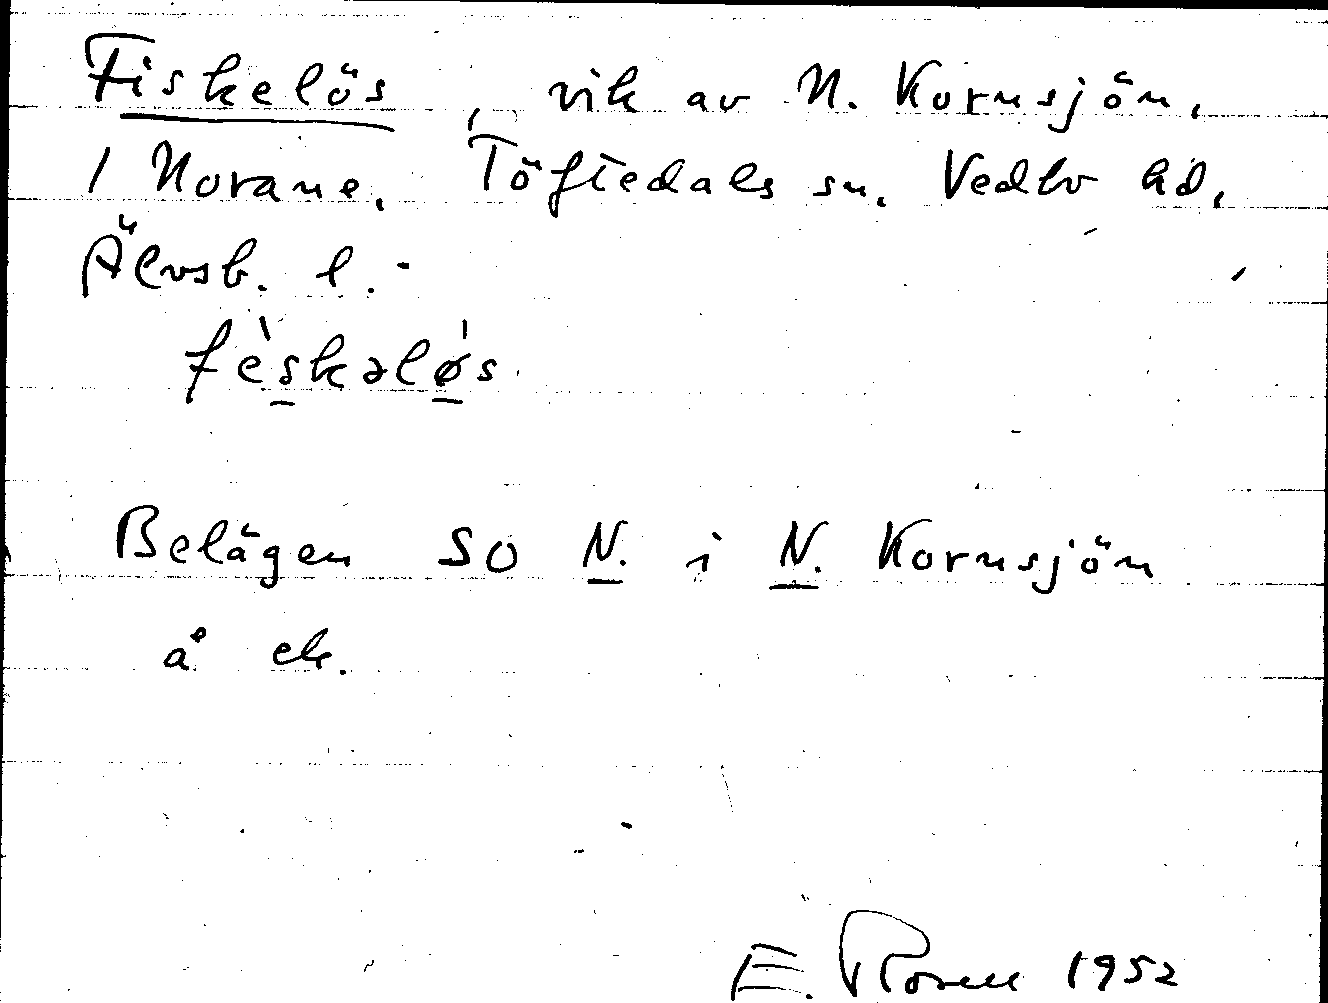 Fiskelös, vik av N. Kornsjön,
1 Norane, Töftedals sn. Vedbo hd,
Älvsb. l.-
fèskəløs
Belägen SO N. i N. Kornsjön
å ek.
E. Rosell 1952